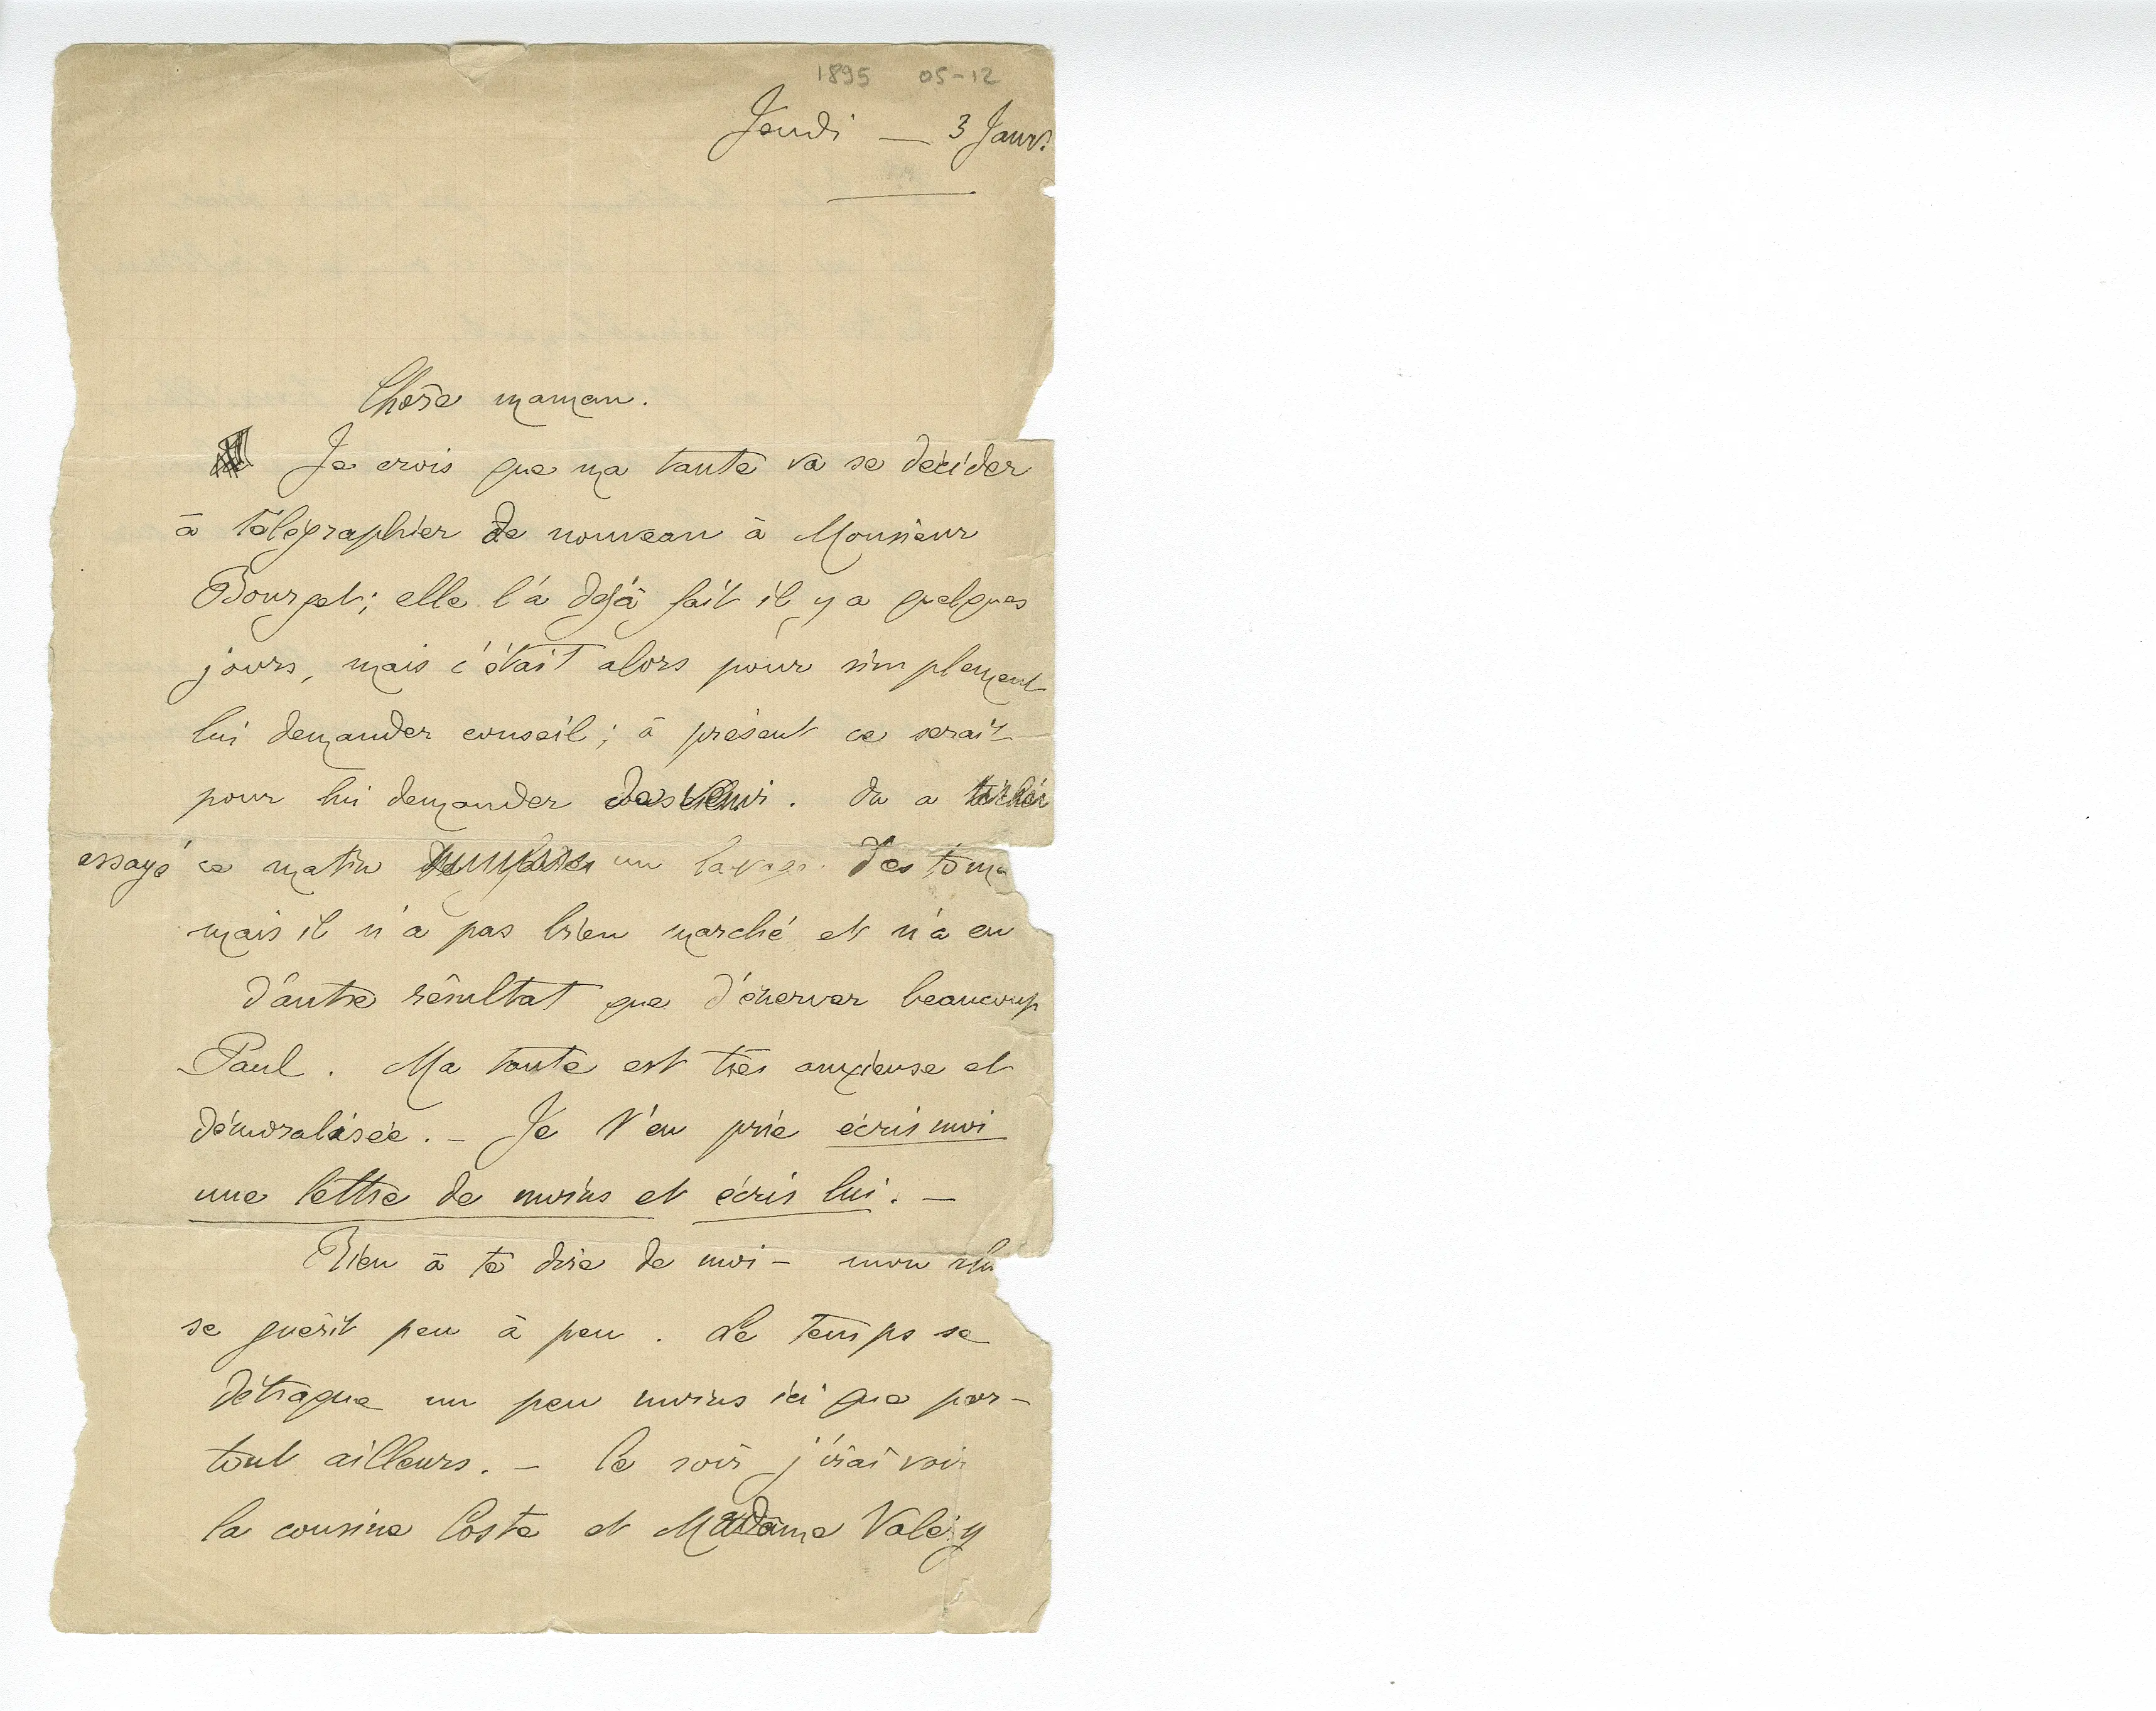 1895 05-12
Jeudi — 3 Janv.
Chère maman.
Je crois que ma tante va se décider
à télégraphier de nouveau à Monsieur
Bourget; elle l'a déjà fait il y a quelques
jours, mais c'était alors pour simplement
lui demander conseil; à présent ce serait
pour lui demander de venir. On a
essayé ce matin un lavage d'estoma
mais il n'a pas bien marché et n'a eu
d'autre résultat que d'énerver beaucoup
Paul. Ma tante est très anxieuse et
démoralisée. — Je t'en prie écris moi
une lettre de moins et écris lui. —
Rien à te dire de moi — mon rhu
se guérit peu à peu. Le temps se
détraque un peu moins ici que par-
tout ailleurs. — Ce soir j'irai voir
la cousine Coste et Madame Valéry